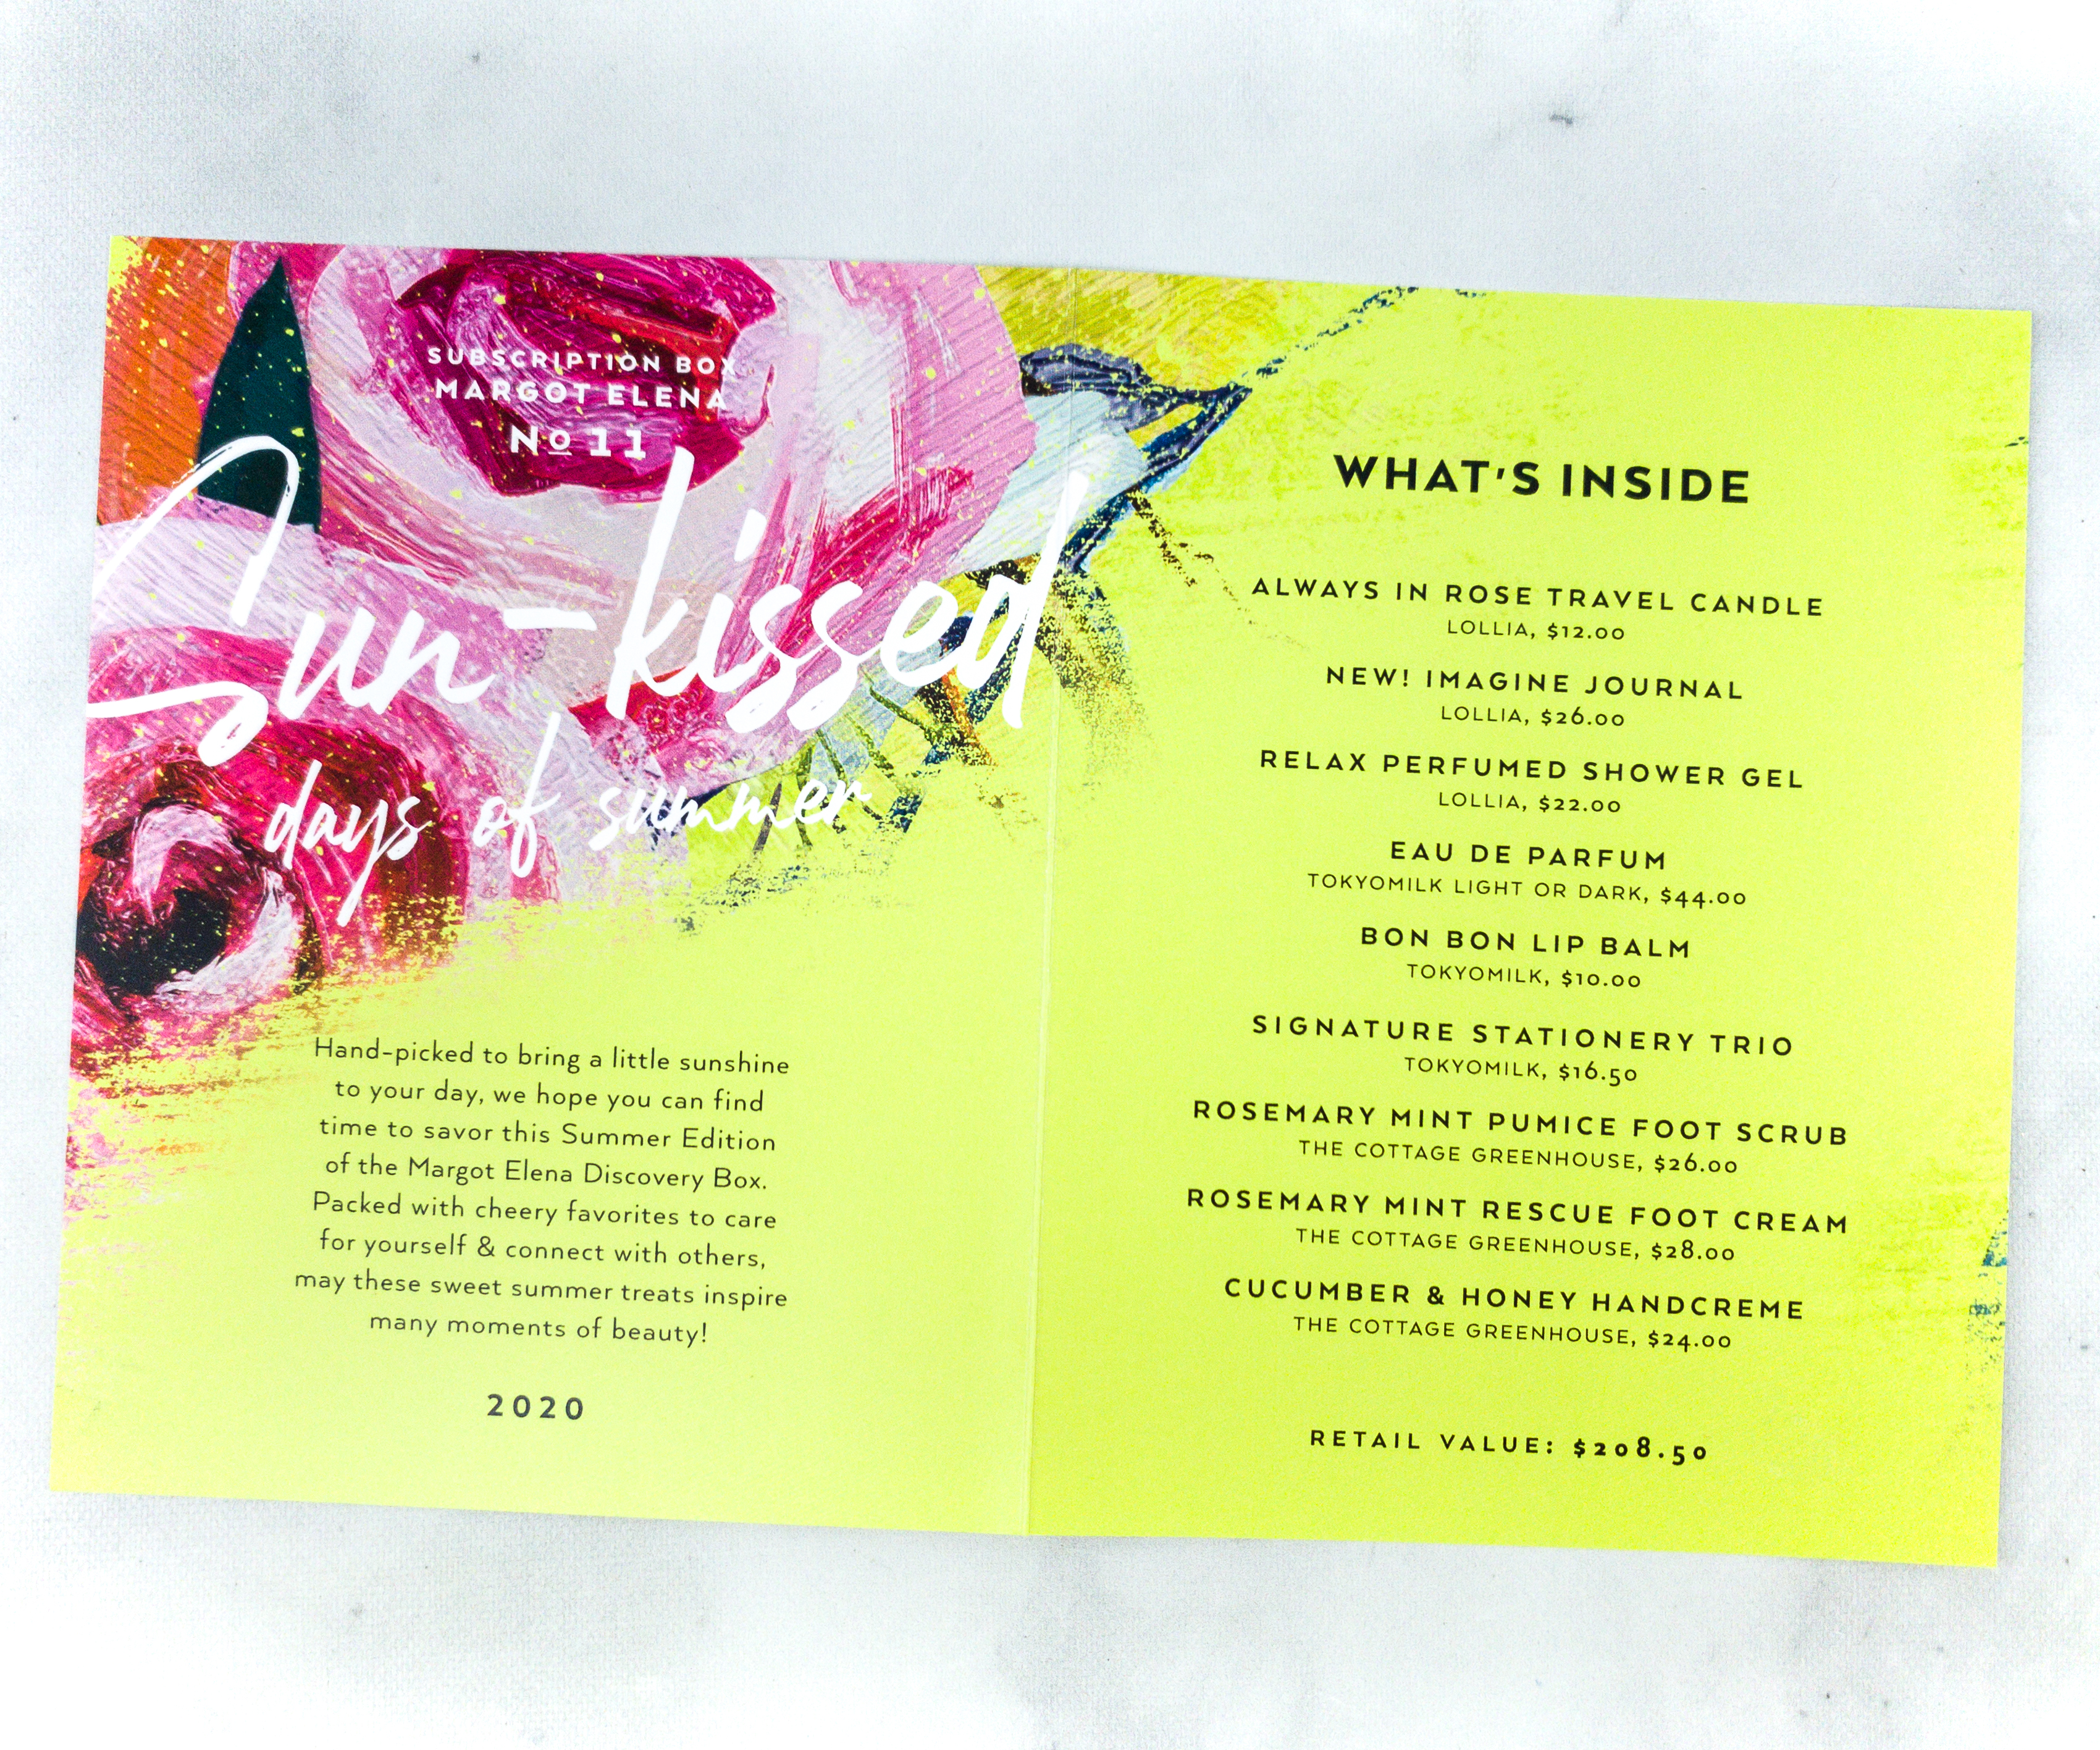 SUBSCRIPTION BOX
MARGOT ELENA
No 11
Sun-kissed
days of summer
Hand-picked to bring a little sunshine
to your day, we hope you can find
time to savor this Summer Edition
of the Margot Elena Discovery Box.
Packed with cheery favorites to care
for yourself & connect with others,
may these sweet summer treats inspire
many moments of beauty!
2020
WHAT'S INSIDE
ALWAYS IN ROSE TRAVEL CANDLE
LOLLIA, $12.00
NEW! IMAGINE JOURNAL
LOLLIA, $26.00
RELAX PERFUMED SHOWER GEL
LOLLIA, $22.00
EAU DE PARFUM
TOKYOMILK LIGHT OR DARK, $44.00
BON BON LIP BALM
TOKYOMILK, $10.00
SIGNATURE STATIONERY TRIO
TOKYOMILK, $16.50
ROSEMARY MINT PUMICE FOOT SCRUB
THE COTTAGE GREENHOUSE, $26.00
ROSEMARY MINT RESCUE FOOT CREAM
THE COTTAGE GREENHOUSE, $28.00
CUCUMBER & HONEY HANDCREME
THE COTTAGE GREENHOUSE, $24.00
RETAIL VALUE: $208.50